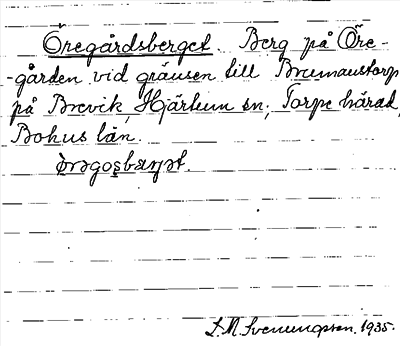 Öregårdsberget. Berg på Öre-
-gården vid gränsen till Brumaustorp
på Brevik, Hjärtum sn; Torpe härad,
Bohus län.
1935.